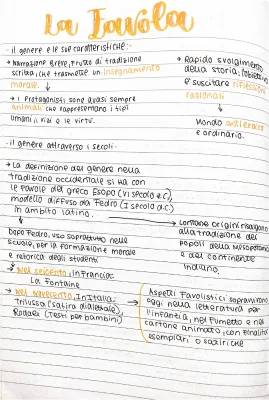 La Favola
- il genere e le sue caratteristiche:-
→ Narrazione Breve, frutto di tradizione
scritta, che trasmette un insegnamento
morale.
→ i Protagonisti sono quasi sempre
animali che rappresentano i tipi
umani, i vizi e le virtù.
→ Rapido svolgimento
della storia; l'obiettivo
è suscitare riflessioni
razionali
Mondo antieroico
e ordinario.
- il genere attraverso i secoli-
→ La definizione del genere nella
tradizione occidentale si ha con
le favole del greco Esopo (VI secolo a.C),
modello diffuso da Fedro (I secolo d.C)
in ambito latino.
→ Lontane origini risalgono
alla tradizione dei
popoli della Mesopotamia
e del continente
indiano.
Dopo Fedro, uso soprattutto nelle
scuole, per la formazione morale
e retorica degli studenti
→ Nel seicento, in Francia:
La Fontaine
→ Nel novecento, in Italia:
Trilussa (satira dialettale),
Rodari (testi per bambini)
→ Aspetti Favolistici sopravvivono
oggi nella letteratura per
l'infanzia, nel fumetto e nel
cartone animato, con finalità
esemplari o satiriche